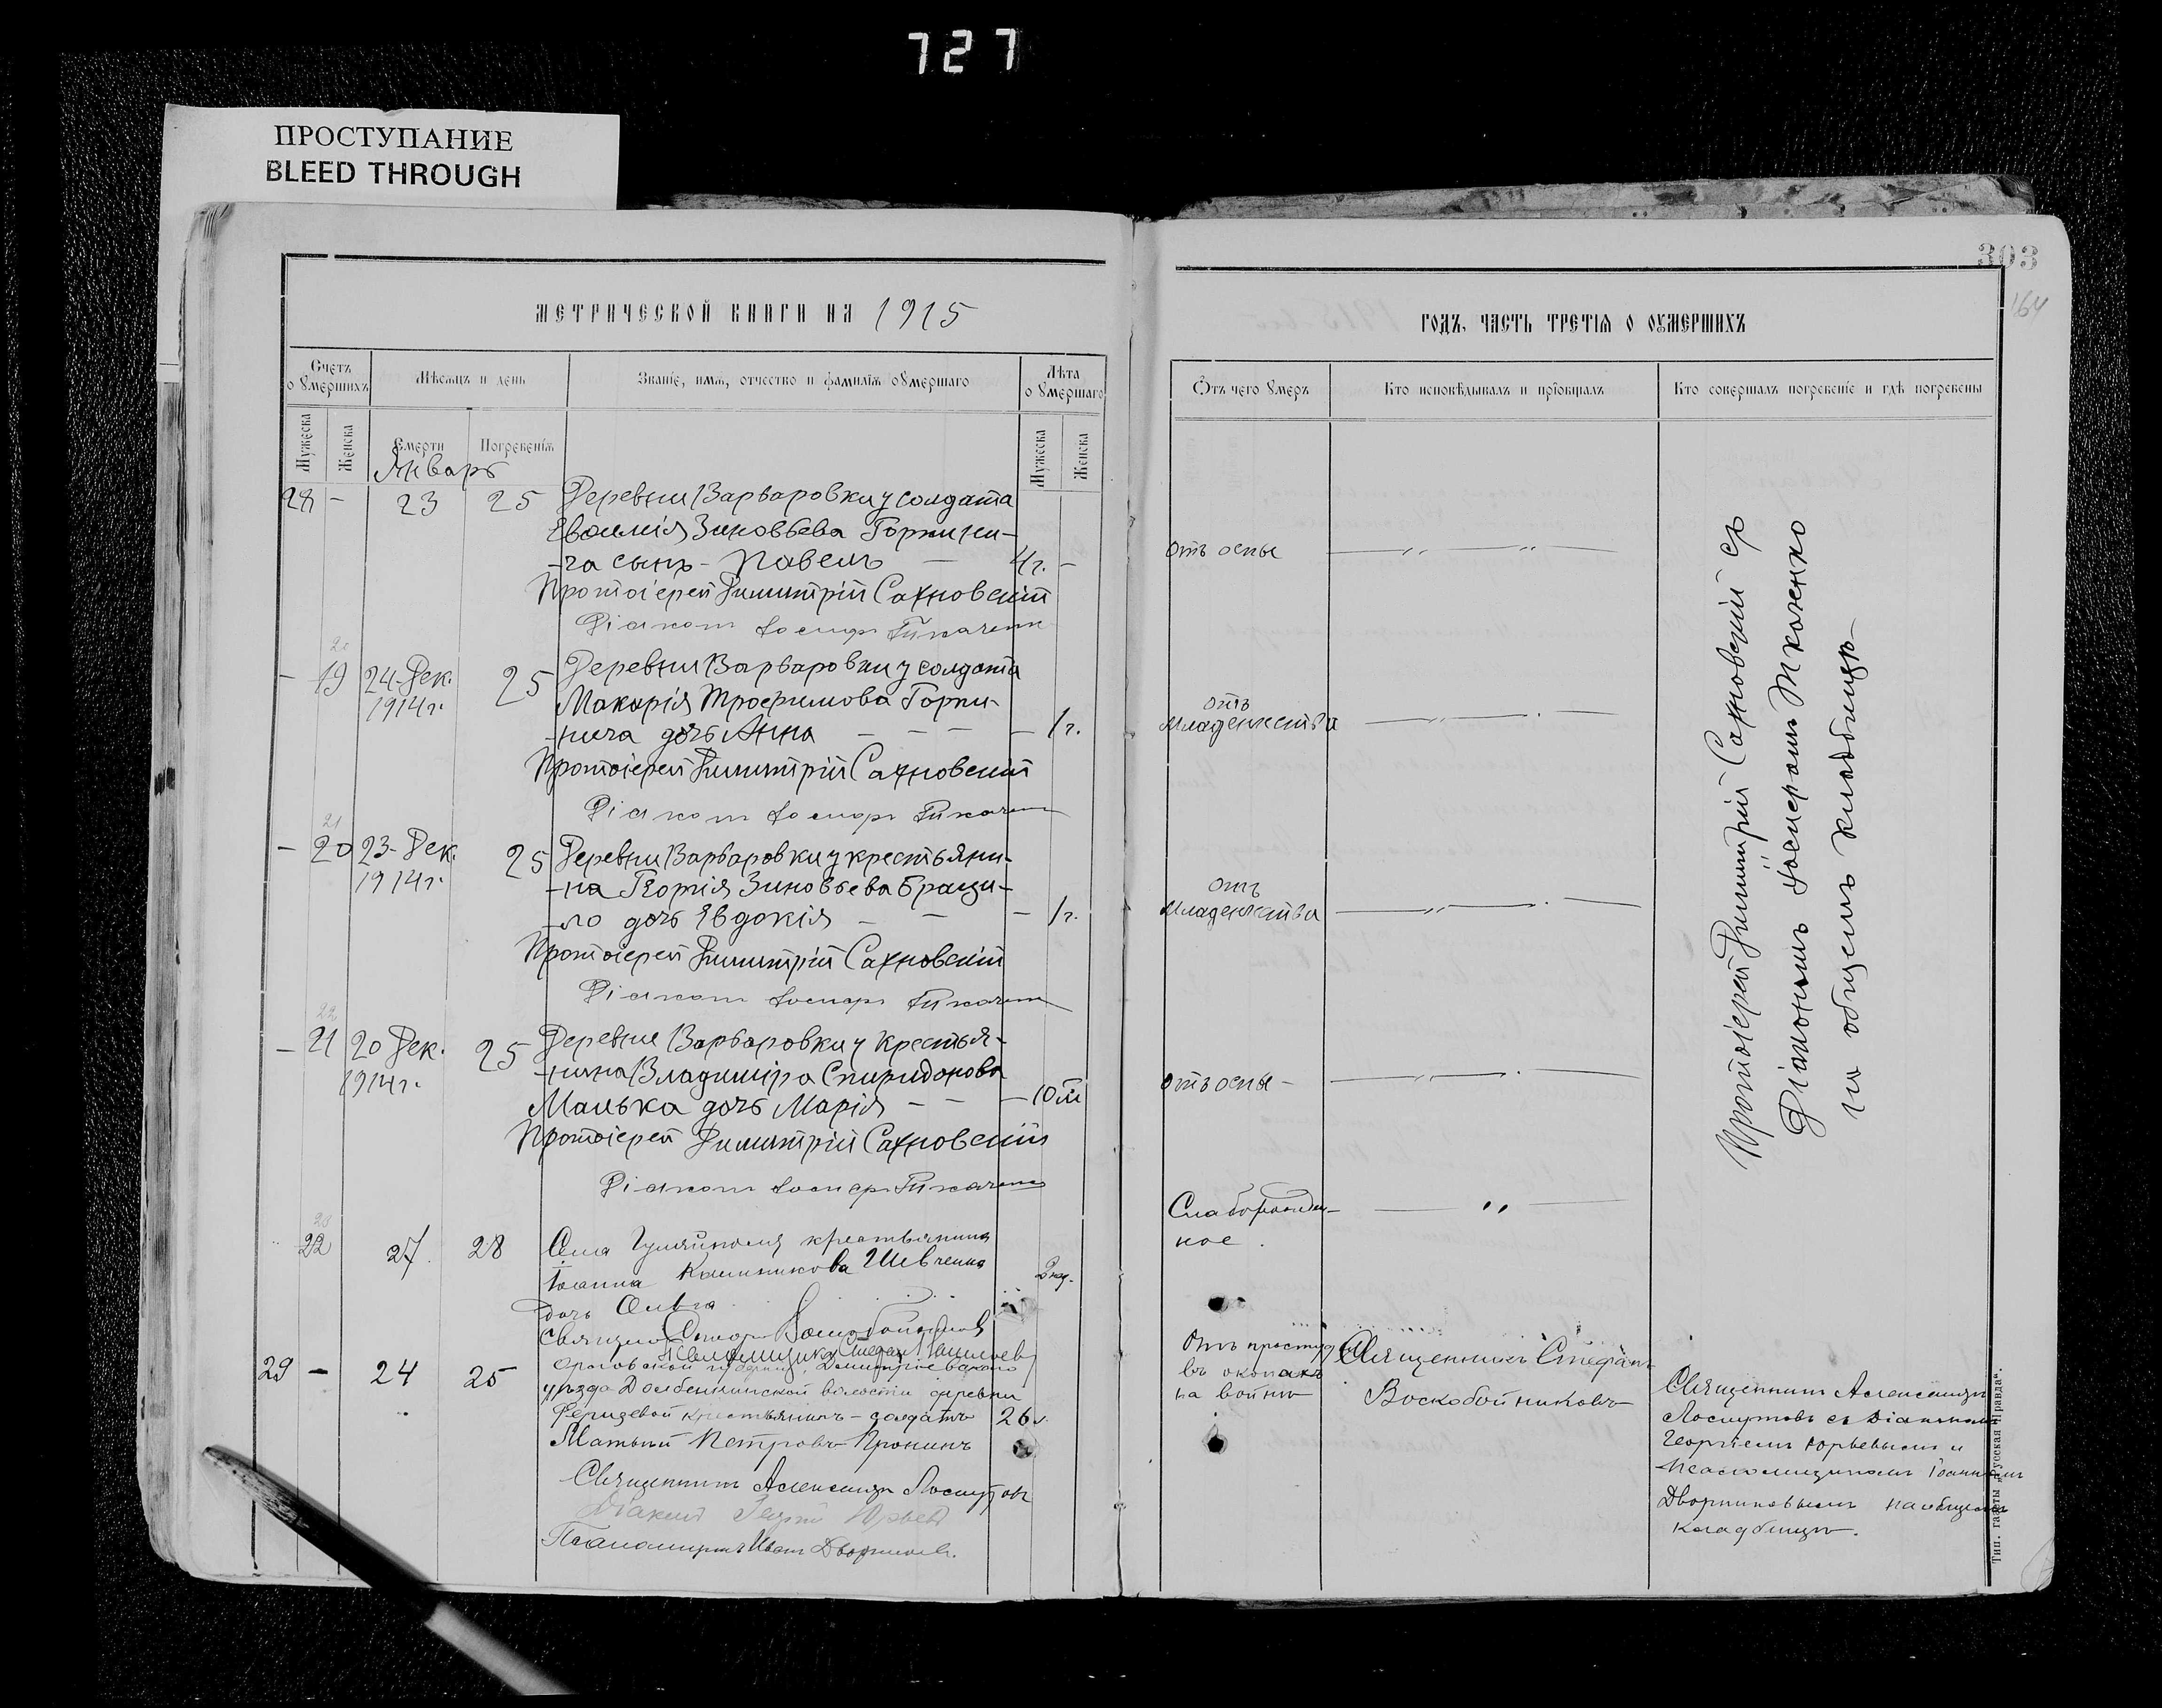 727
ПРОСТУПАНИЕ
BLEED THROUGH
303
164
МЕТРИЧЕСКОЙ КНИГИ НА 1915
ГОДЪ, ЧАСТЬ ТРЕТІЯ О ОУМЕРШИХЪ
Счетъ оумершихъ
Мѣсяцъ и день
Званіе, имя, отчество и фамилія оумершаго
Лѣта оумершаго
Отъ чего умеръ
Кто исповѣдывалъ и пріобщалъ
Кто совершалъ погребеніе и гдѣ погребены
Мужеска
Женска
Смерти
Погребенія
Мужеска
Женска
Январь
28 – 23 25 Деревни Варваровки у солдата
Евѳимія Зиновьева Горпини-
-ча сынъ – Павелъ – 4 г. –
отъ оспы
Протоіерей Димитрій Сахновскій
Діаконъ Іосифъ Ткаченко
20
– 19 24 Дек. 25 Деревни Варваровки у солдата
1914 г. Макарія Трофимова Горпи-
-нича дочь Анна – – – – 1 г.
отъ
младенчества
Протоіерей Димитрій Сахновскій
Діаконъ Іосифъ Ткаченко
21
– 20 23 Дек. 25 Деревни Варваровки у крестьяни-
1914 г. -на Георгія Зиновьева Бращи-
-ло дочь Евдокія – – – 1 г.
отъ
младенчества
Протоіерей Димитрій Сахновскій
Діаконъ Іосифъ Ткаченко
22
– 21 20 Дек. 25 Деревни Варваровки у крестья-
1914 г. -нина Владиміра Спиридонова
Малька дочь Марія – – – 10 м
отъ оспы –
Протоіерей Димитрій Сахновскій
Діаконъ Іосифъ Ткаченко
Протоіерей Димитрій Сахновскій съ
Діакономъ Іосифомъ Ткаченко
на общемъ кладбищѣ
23
22 27 28 Села Гуляйполя крестьянина
Іоанна Калиникова Шевченко
дочь Ольга
2 нед.
Слаборожден-
ное.
Псаломщикъ Стефанъ
29 – 24 25 Орловской губерніи, Дмитріевскаго
уѣзда Долбенкинской волости деревни
крестьянинъ – солдатъ 26
Матвій Петровъ Пронинъ
Отъ простуды
въ окопахъ
на войнѣ
Священникъ Стефанъ
Воскобойниковъ
Священникъ Александръ
Лоскутовъ съ Діакономъ
Георгіемъ Юрьевымъ и
Псаломщикомъ Іоанномъ
Дворниковымъ на общемъ
кладбищѣ.
Священникъ Александръ Лоскутовъ
Діаконъ Георгій Юрьевъ
Псаломщикъ Иванъ Дворниковъ.
Тип. газеты „Русская Правда“.